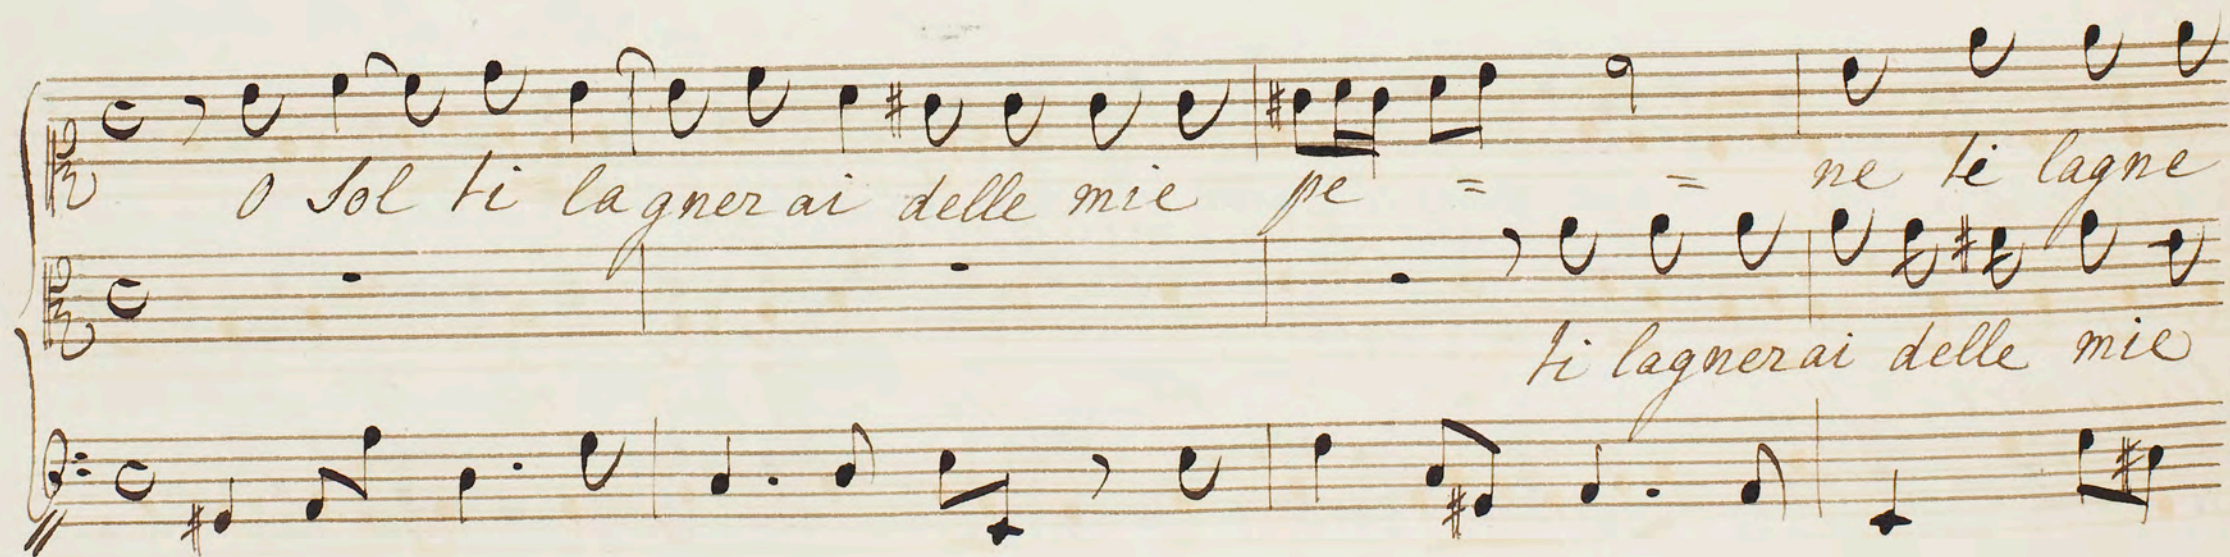 O Sol ti lagnerai delle mie pe = = ne ti lagne
ti lagnerai delle mie